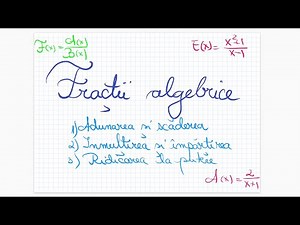 F(x) = A(x)/B(x)
E(x) = x²+1/x-1
Fracții algebrice
1) Adunarea și scăderea
2) Inmultirea și împărtirea
3) Ridicarea la putere
A(x) = 2/x+1